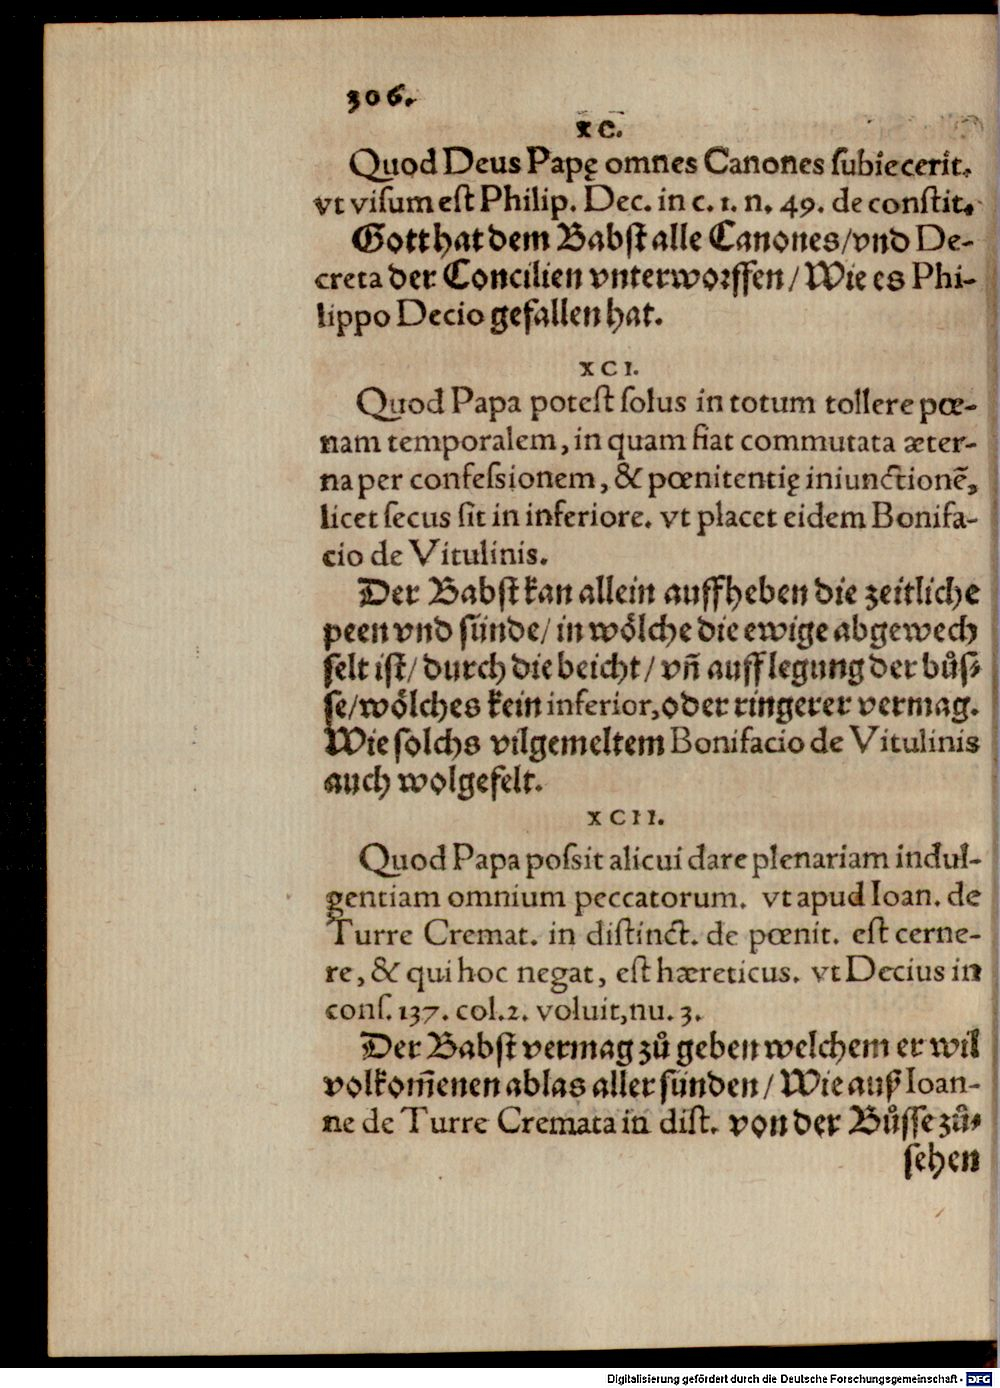 306.
XC.
Quod Deus Papę omnes Canones ſubiecerit.
vt viſum eſt Philip. Dec. in c. 1. n. 49. de conſtit.
Gott hat dem Babſt alle Canones/vnd De-
creta der Concilien vnterworffen/Wie es Phi-
lippo Decio gefallen hat.
XCI.
Quod Papa poteſt ſolus in totum tollere pœ-
nam temporalem, in quam fiat commutata æter-
na per confeſsionem, & pœnitentię iniunctionē,
licet ſecus ſit in inferiore. vt placet eidem Bonifa-
cio de Vitulinis.
Der Babſt kan allein auffheben die zeitliche
peen vnd ſünde/ in wölche die ewige abgewech
ſelt iſt/ durch die beicht/ vn̄ aufflegung der bůſ⸗
ſe/wölches kein inferior, oder ringerer vermag.
Wie ſolchs vilgemeltem Bonifacio de Vitulinis
auch wolgefelt.
XCII.
Quod Papa poſsit alicui dare plenariam indul-
gentiam omnium peccatorum. vt apud Ioan. de
Turre Cremat. in diſtinct. de pœnit. eſt cerne-
re, & qui hoc negat, eſt hæreticus. vt Decius in
conſ. 137. col. 2. voluit, nu. 3.
Der Babſt vermag zů geben welchem er wil
volkom̄enen ablas aller ſünden/ Wie auß Ioan-
ne de Turre Cremata in diſt. von der Bůſſe zů⸗
ſehen
Digitalisierung gefördert durch die Deutsche Forschungsgemeinschaft - DFG